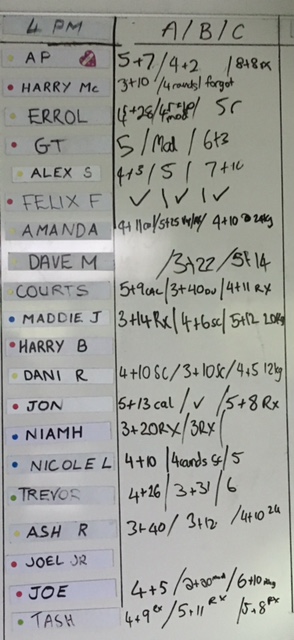 4 PM A/B/C
AP 5+7/4+2 /8+8rx
HARRY Mc 3+10/4rounds/forgot
ERROL 4+26/ 5r
GT 5/Mod/6+3
ALEX S 4+3/5/7+10
FELIX F ✓/✓/✓
AMANDA 4+10 @ 24kg
DAVE M /3+22/5+14
COURTS 5+9cal/3+400U/4+11RX
MADDIE J 3+14Rx/4+6sc/5+12 20kg
HARRY B
DANI R 4+10SC/3+10SC/4+5 12kg
JON 5+13 cal/✓/5+8Rx
NIAMH 3+20RX/3RX/
NICOLE L 4+10/4rounds Sc/5
TREVOR 4+26/3+31/6
ASH R 3+40/3+12 /4+10 24
JOEL JR
JOE 4+5/2+20mod/6+10
TASH 4+9rx/5+11RX/5+8RX